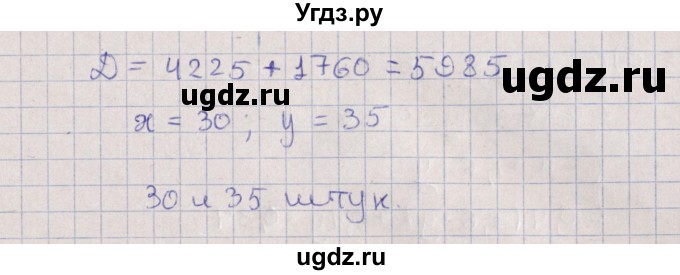 Угдз.ру
D = 4225 + 1760 = 5985
ugdz.ru
ugdz.ru
x = 30; y = 35
ugdz.ru
30 и 35 штук.
ugdz.ru
ugdz.ru